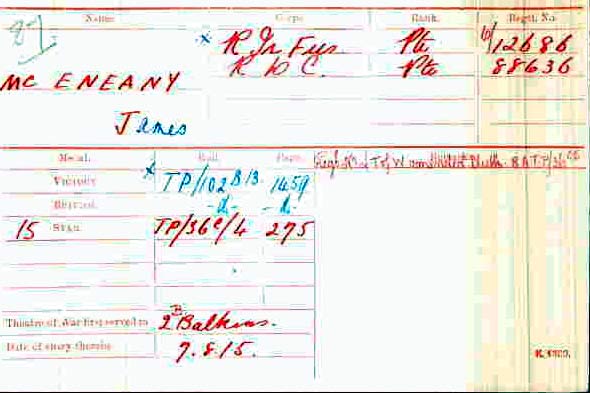 87
Name. Corps. Rank. Regtl. No.
x R Ir Fus Pte 6/12686
R D C. Pte 88636
MC ENEANY
James
Medal. Roll. Page.
VICTORY x TP/102 B13. 1459
BRITISH -do- -do-
15 STAR TP/36C/4 275
Theatre of War first served in 2B Balkans.
Date of entry therein 7.8.15.
K. 1380.